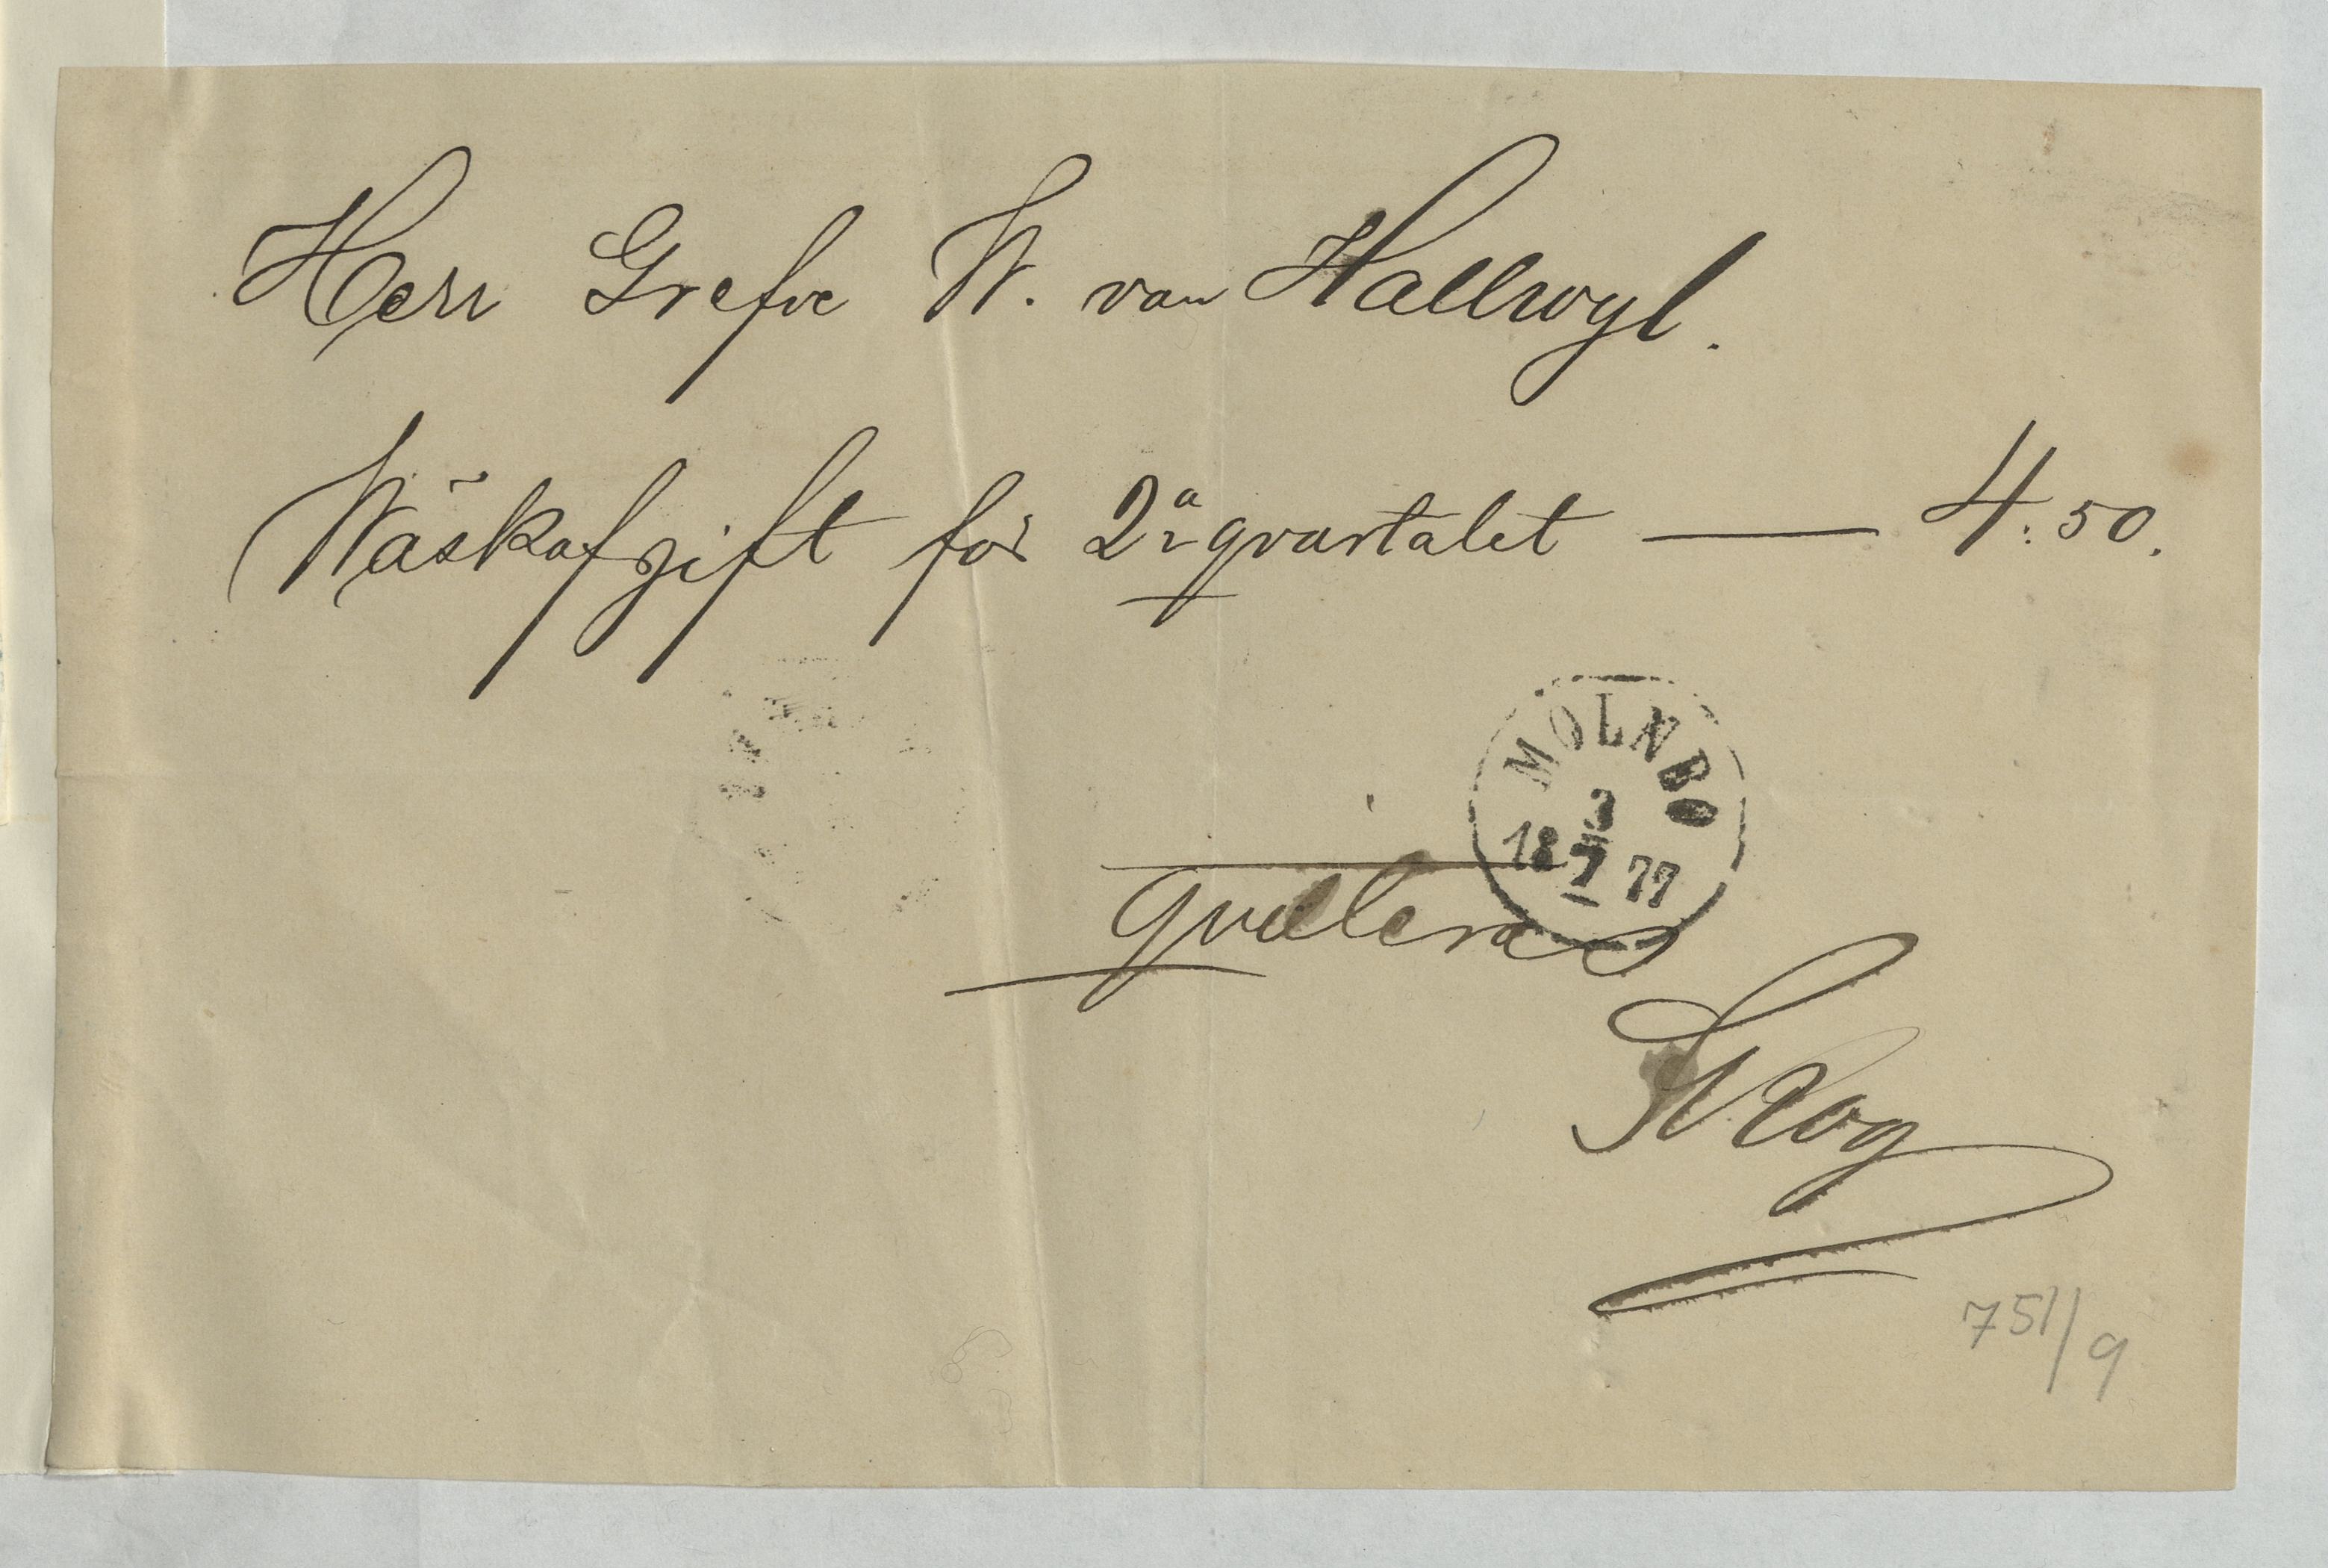 Herr Grefve W. von Hallwyl.
Wäskafgift för 2a qvartalet — 4: 50.
MOLNBO
3
18 7 77
qvitteras
Skog
751/9